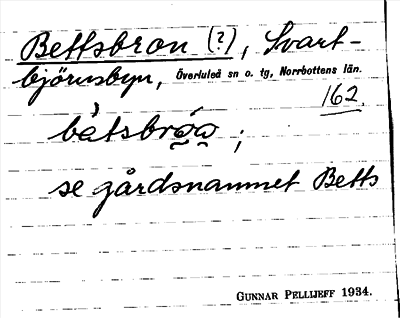 Bettsbron (?), Svart-
björnsbyn, Överluleå sn o. tg, Norrbottens län.
162.
bètsbróω ;
se gårdsnamnet Betts
GUNNAR PELLIJEFF 1934.